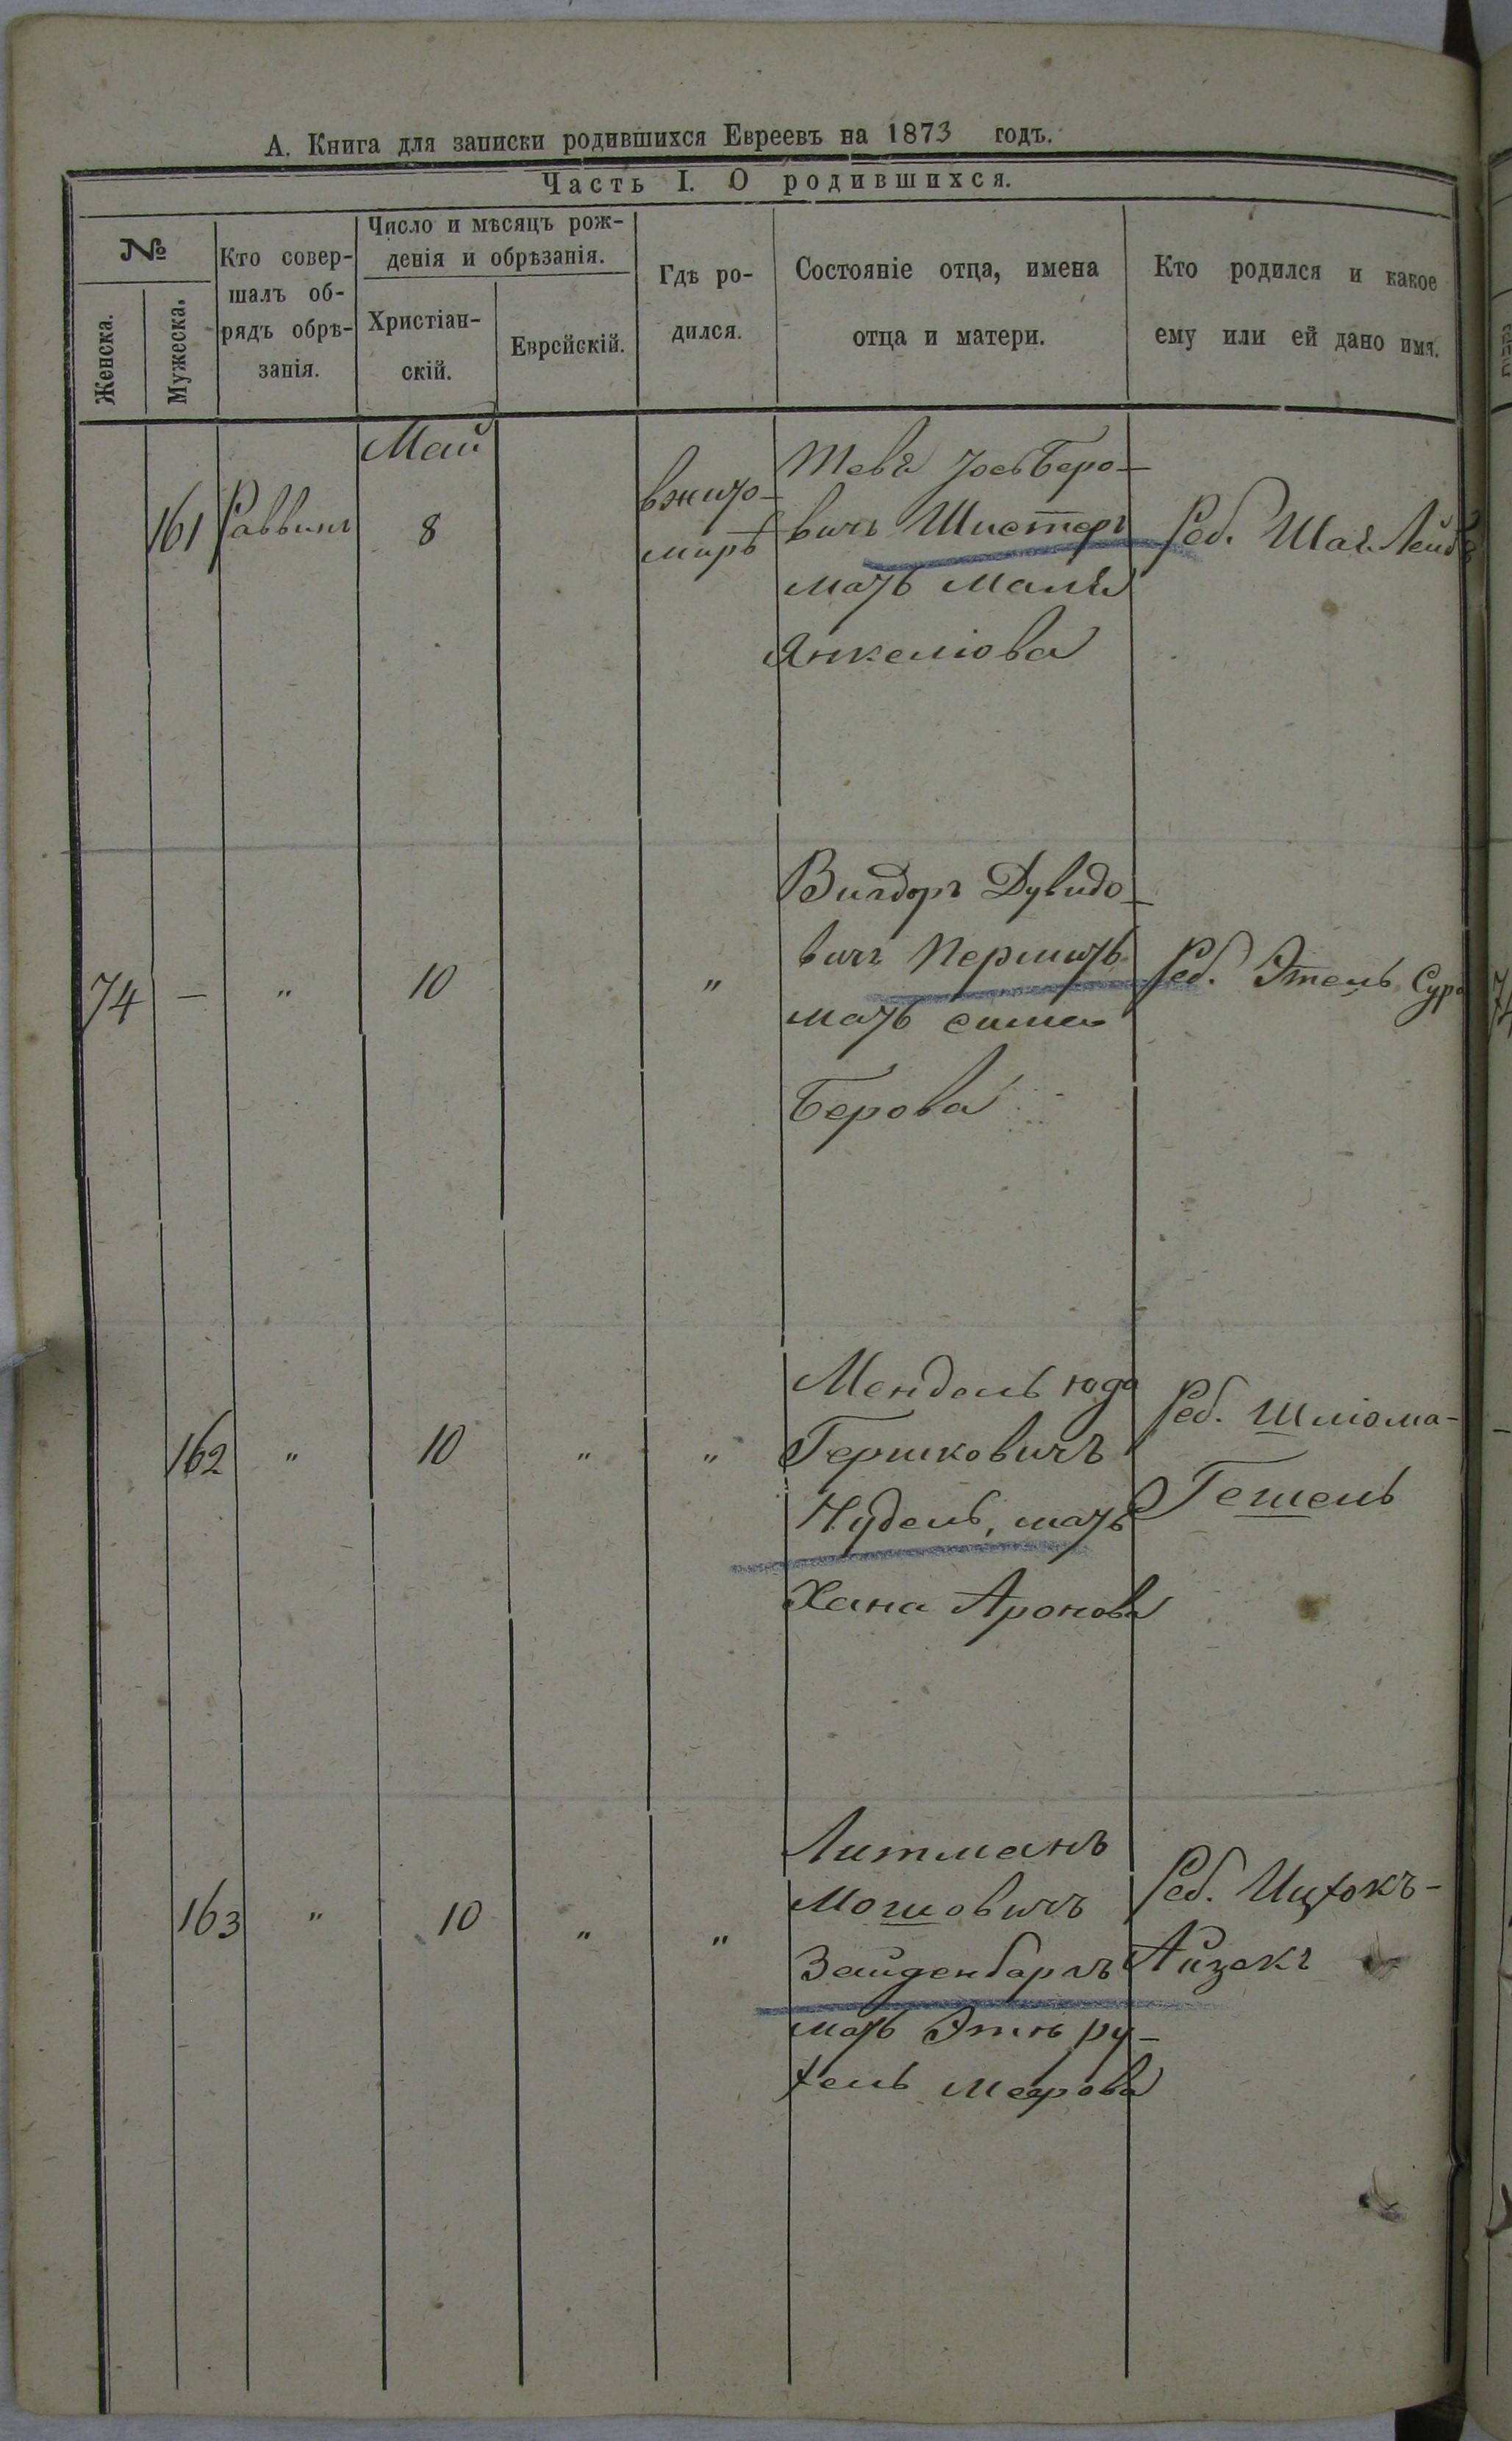 А. Книга для записки родившихся Евреевъ на 1873 годъ.
Часть I. О родившихся.
№
Женска.
Мужеска.
Кто совер-
шалъ об-
рядъ обрѣ-
занія.
Число и мѣсяцъ рож-
денія и обрѣзанія.
Христіан-
скій.
Еврейскій.
Гдѣ ро-
дился.
Состояніе отца, имена
отца и матери.
Кто родился и какое
ему или ей дано имя.
Май
161
Раввинъ
8
вжито-
мирѣ
Іось Беро-
вичъ Шистеръ
мать Маля
Янкеліова
Реб. Шая. Лейб
74
—
"
10
"
Вигдоръ Дувидо-
вичъ Пермутъ
мать Сима
Берова
Реб. Этель Сура
162
"
10
"
"
Мендель Юда
Гершковичъ
Нудель, мать
Хана Аронова
Реб. Шліома-
Гешель
163
"
10
"
"
Литманъ
Мошовичъ
Зайденбаргъ
мать Этя Ру-
хель Меерова
Реб. Ицхокъ-
Айзекъ